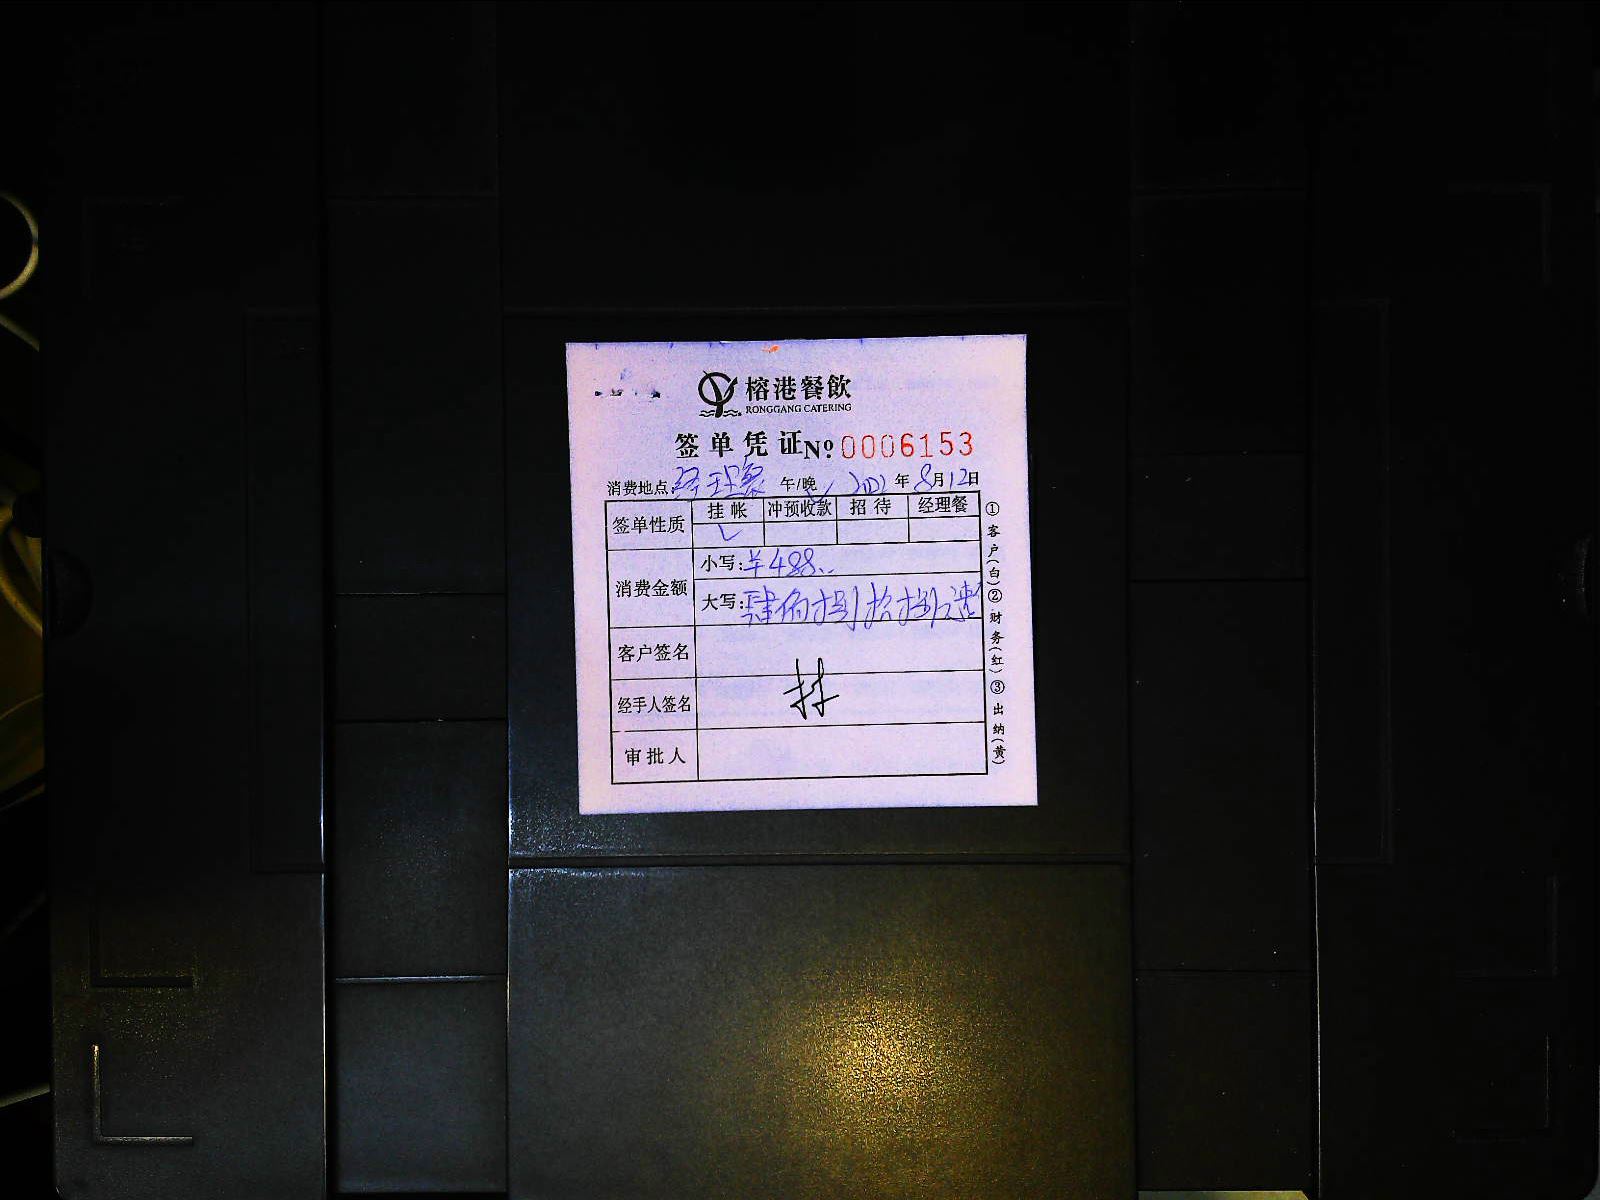 榕港餐飲
RONGGANG CATERING
签单凭证 Nº 0006153
消费地点 经理餐 午/晚 ✓ 年 8月12日
签单性质 挂帐 冲预收款 招待 经理餐
✓
消费金额 小写:¥488..
大写:肆佰捌拾捌
客户签名
经手人签名 林
审批人
①客户(白)②财务(红)③出纳(黄)